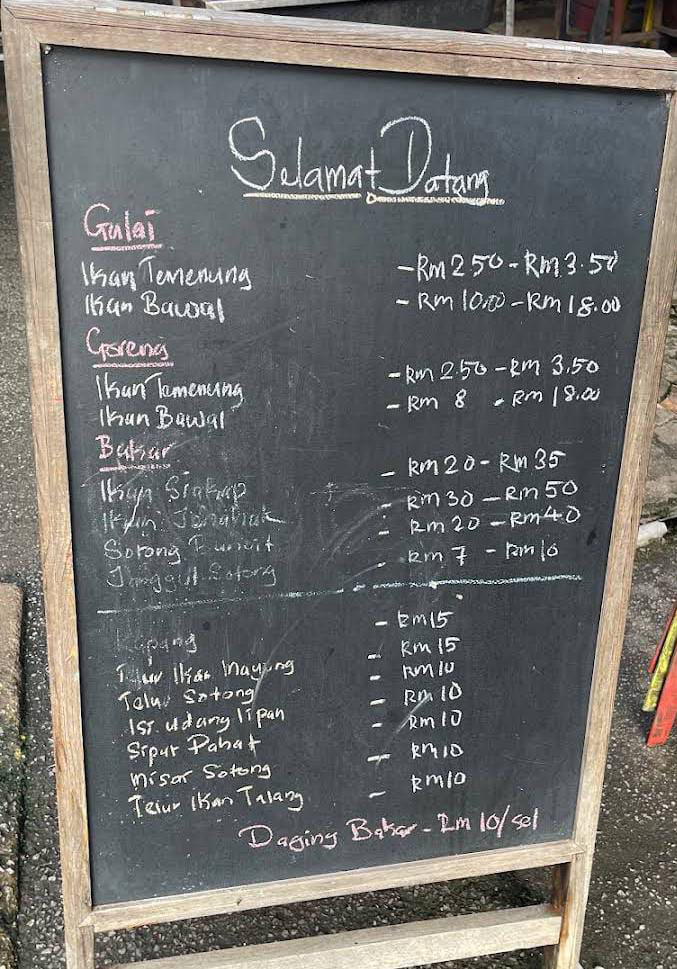 Selamat Datang
Gulai
Ikan Temenung - Rm 2.50 - Rm 3.50
Ikan Bawal - Rm 10.00 - Rm 18.00
Goreng
Ikan Temenung - Rm 2.50 - Rm 3.50
Ikan Bawal - Rm 8 - Rm 18.00
Bakar
Ikan Siakap - Rm 20 - Rm 35
Ikan Jenahak - Rm 30 - Rm 50
Sotong Bunut - Rm 20 - Rm 40
Janggut Sotong - Rm 7 - Rm 10
Kupang - Rm 15
Telur Ikan Mayung - Rm 15
Telur Sotong - Rm 10
Isi udang lipan - Rm 10
Siput Pahat - Rm 10
misai Sotong - Rm 10
Telur Ikan Talang - Rm 10
Daging Bakar - Rm 10/sel